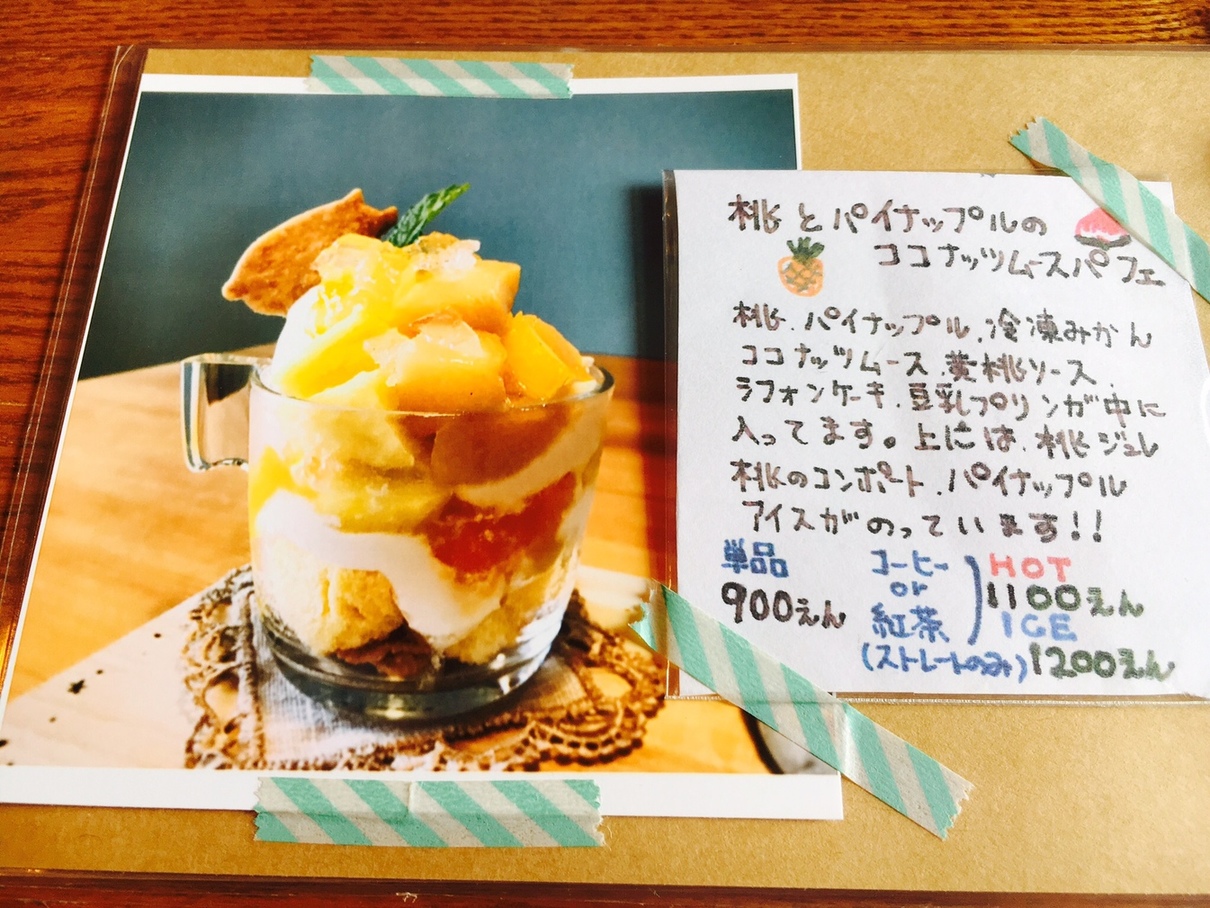 桃とパイナップルの
ココナッツムースパフェ
桃、パイナップル、冷凍みかん
ココナッツムース、黄桃ソース、
ラフォンケーキ、豆乳プリンが中に
入ってます。上には、桃ジュレ
桃のコンポート、パイナップル
アイスがのっています!!
単品
900えん
コーヒー
or
紅茶
(ストレートのみ)
HOT
1100えん
ICE
1200えん